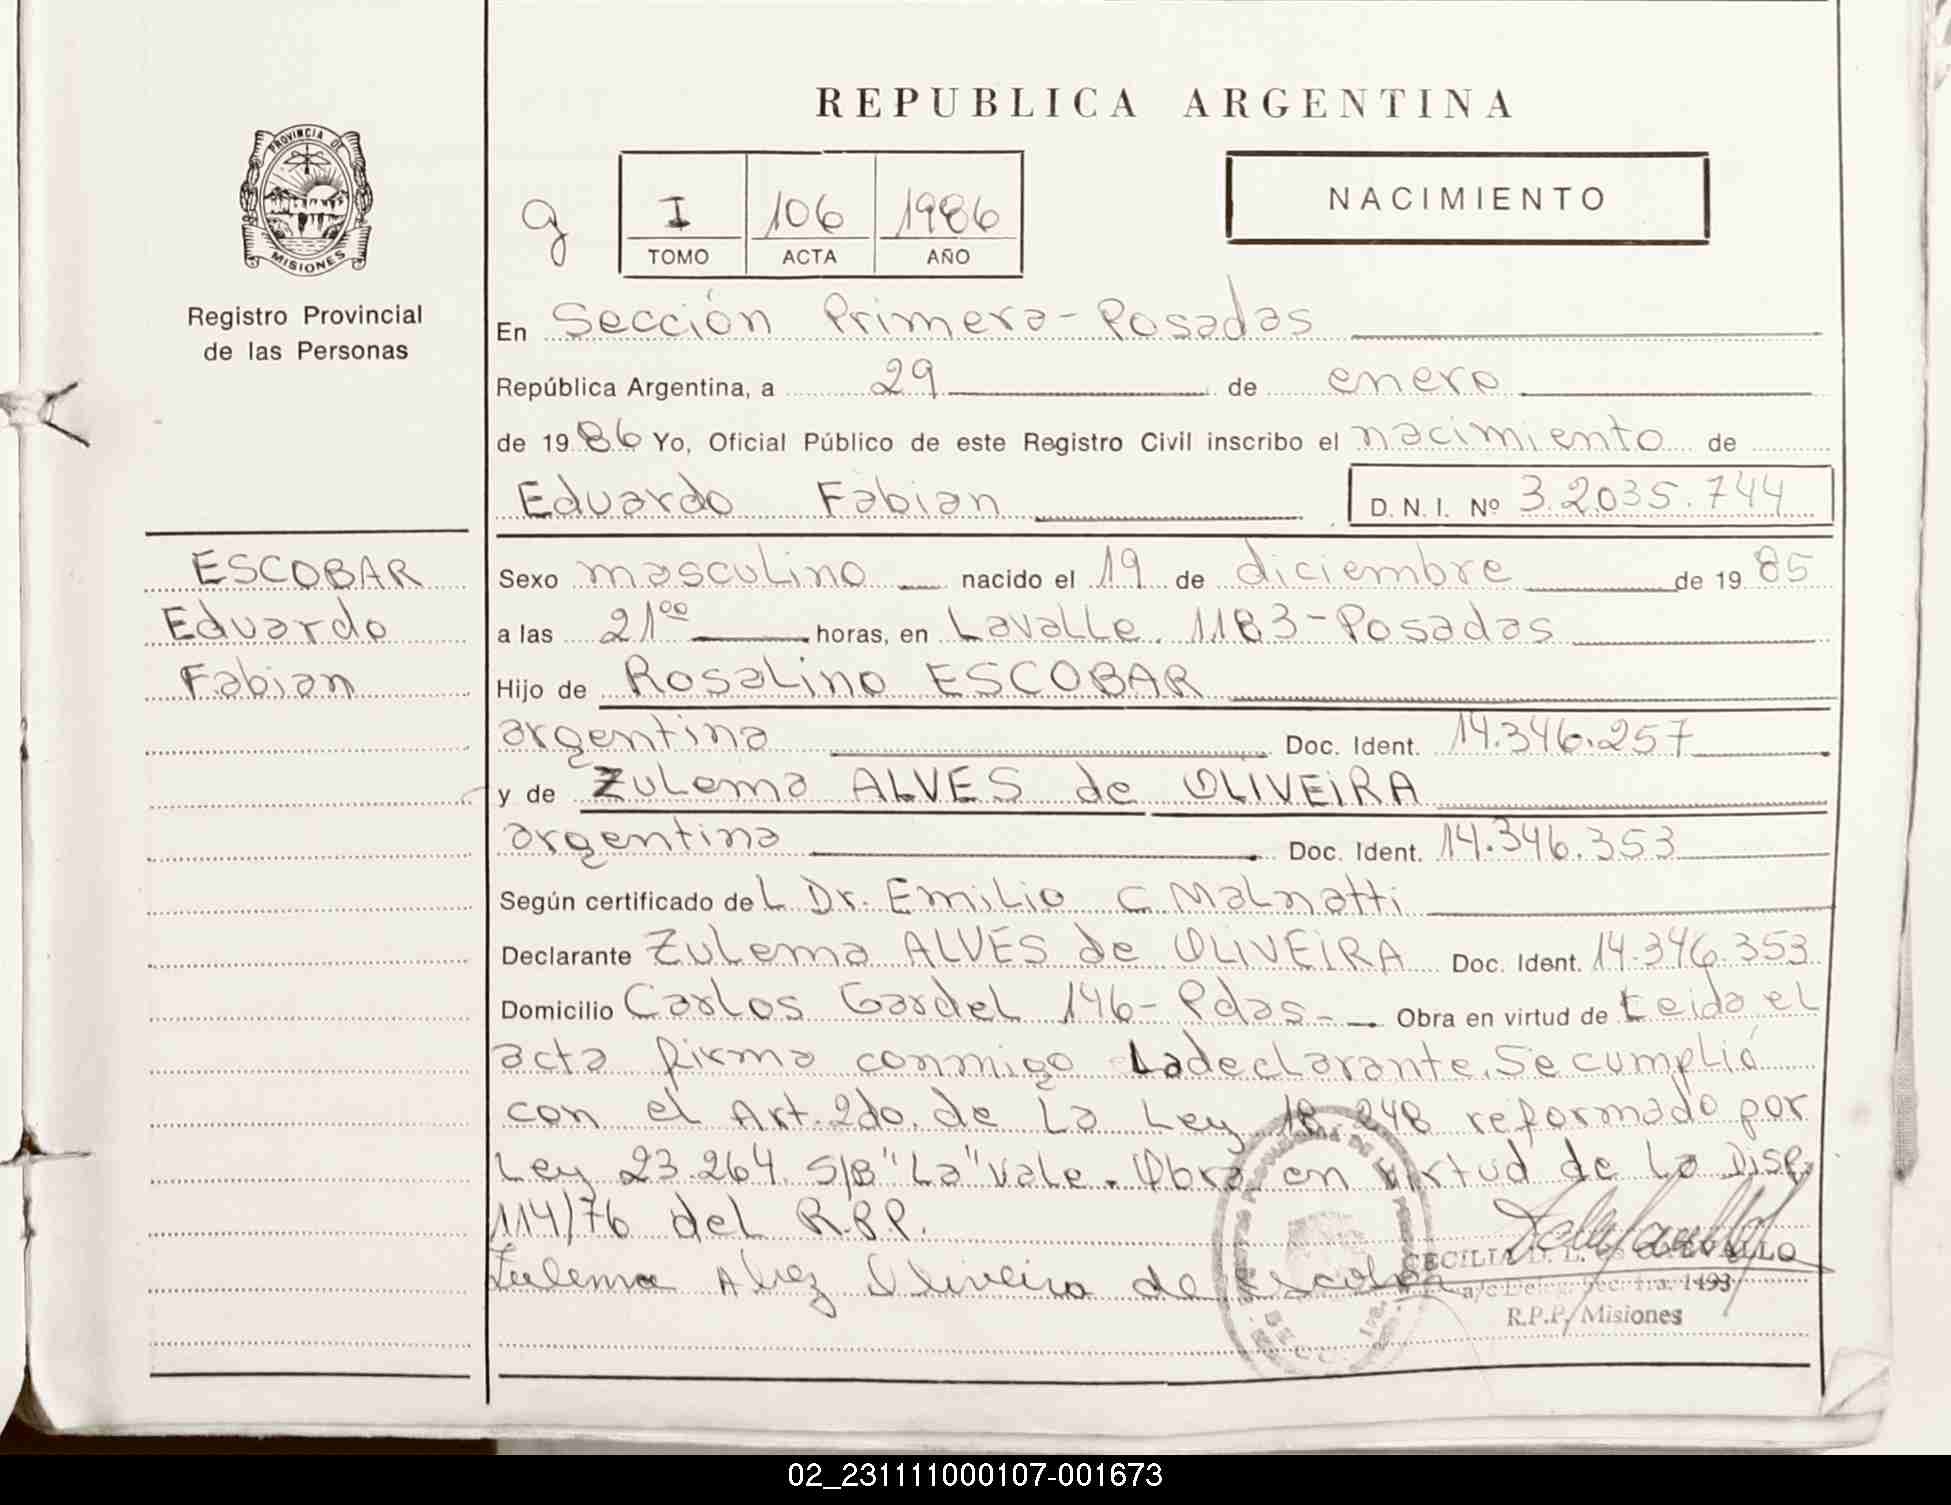 REPUBLICA ARGENTINA
PROVINCIA DE
MISIONES
Registro Provincial
de las Personas
g
I 106 1986
TOMO ACTA AÑO
NACIMIENTO
En Sección Primera - Posadas
República Argentina, a 29 de enero
de 1986 Yo, Oficial Público de este Registro Civil inscribo el nacimiento de
Eduardo Fabian D.N.I. Nº 3.2035.744
ESCOBAR
Eduardo
Fabian
Sexo masculino nacido el 19 de diciembre de 1985
a las 21⁰⁰ horas, en Lavalle 1183 - Posadas
Hijo de Rosalino ESCOBAR
argentina Doc. Ident. 14.346.257
y de Zulema ALVES de OLIVEIRA
argentina Doc. Ident. 14.346.353
Según certificado del Dr. Emilio C Malnatti
Declarante Zulema ALVES de OLIVEIRA Doc. Ident. 14.346.353
Domicilio Carlos Gardel 146 - Pdas - Obra en virtud de Leida el
acta firma conmigo La declarante. Se cumplió
con el Art. 2do. de La Ley 18.248 reformado por
Ley 23.264. S/B "La" Vale. Obra en virtud de la Disp.
114/76 del R.P.P.
Zulema Alvez Oliveira de Escobar
CECILIA
a/c Deleg. Sec. 1ra. 1493
R.P.P. Misiones
02_231111000107-001673